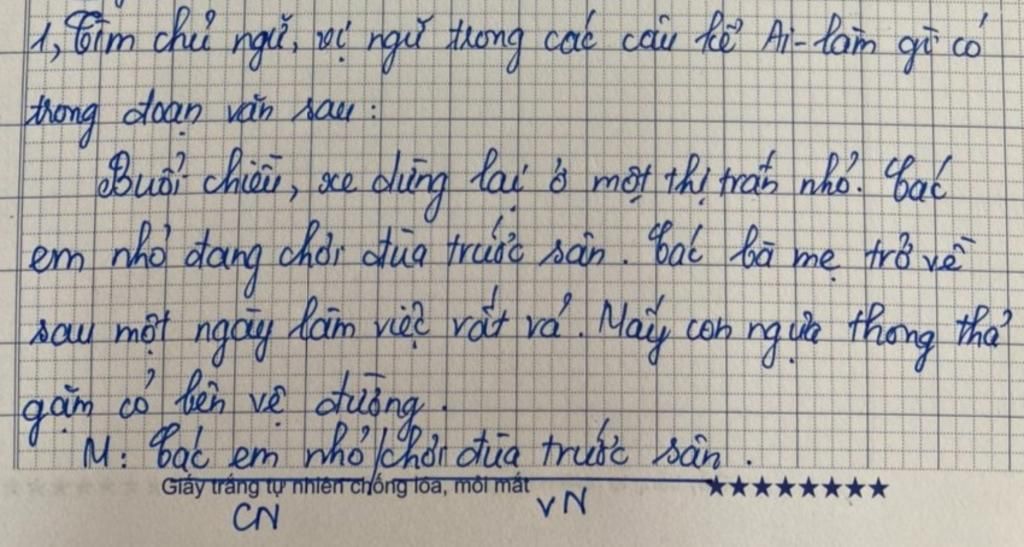 1, Tìm chủ ngữ, vị ngữ trong các câu kể Ai-làm gì có
trong đoạn văn sau:
Buổi chiều, xe dừng lại ở một thị trấn nhỏ. Các
em nhỏ đang chơi đùa trước sân. Các bà mẹ trở về
sau một ngày làm việc vất vả. Mấy con ngựa thong thả
gặm cỏ bên vệ đường.
M: Các em nhỏ/chơi đùa trước sân.
Giấy trắng tự nhiên chống lóa, mỏi mắt ★★★★★★★★
CN VN